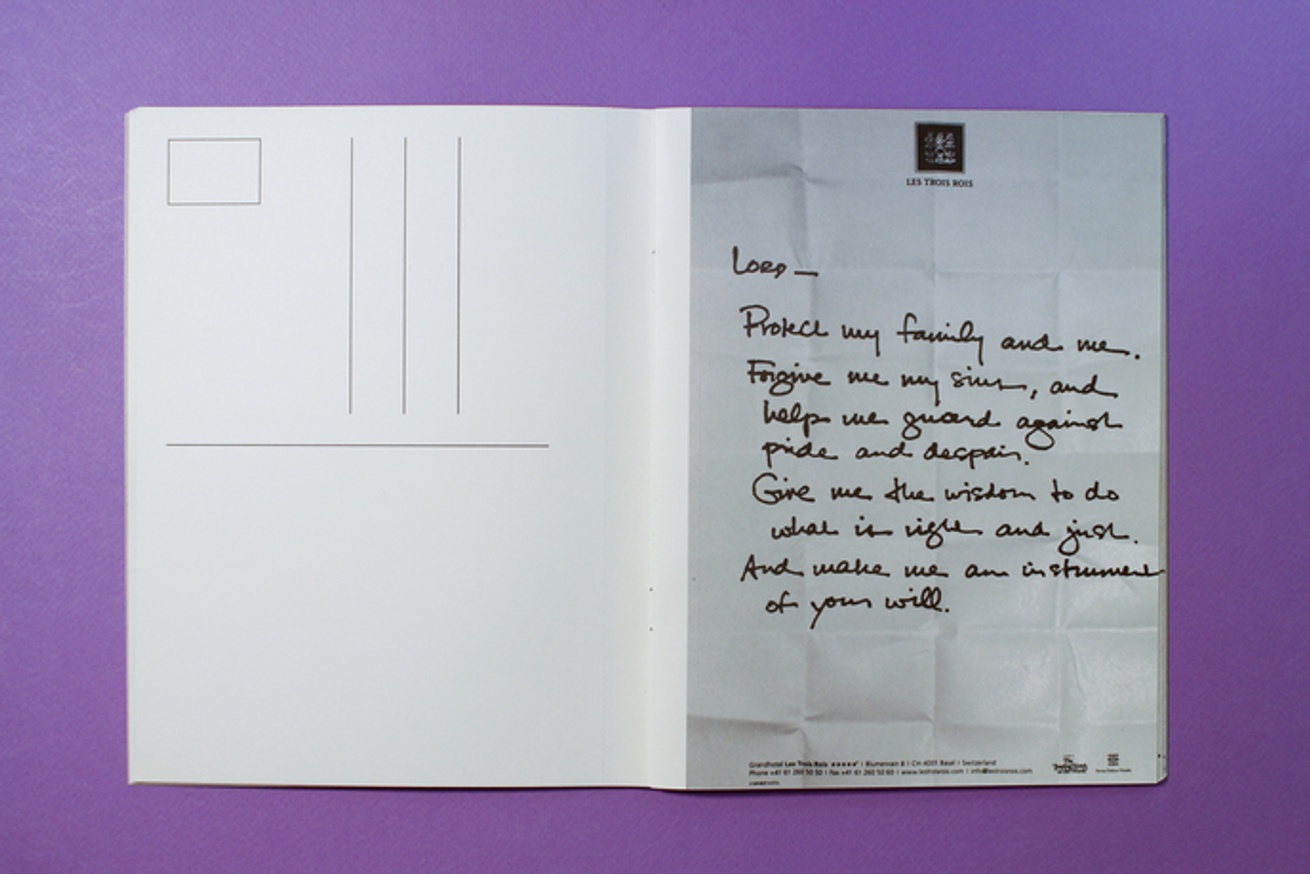 LES TROIS ROIS
Lord —
Protect my family and me.
Forgive me my sins, and
help me guard against
pride and despair.
Give me the wisdom to do
what is right and just.
And make me an instrument
of your will.
Grandhotel Les Trois Rois ★★★★★ | Blumenrain 8 | CH-4001 Basel | Switzerland
Phone +41 61 260 50 50 | Fax +41 61 260 50 60 | www.lestroisrois.com | info@lestroisrois.com